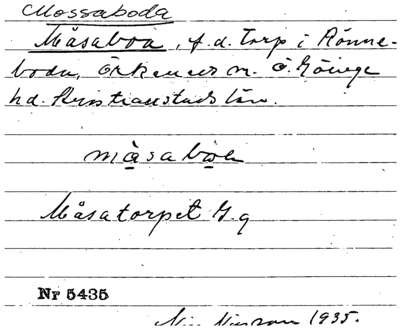 Mossaboda
Måsaboa, f.d. torp i Rönne-
boda, Örkeneds sn. Ö. Göinge
hd. Kristianstads län.
måsaboa
Måsatorpet G.g
Nr 5435
1935.